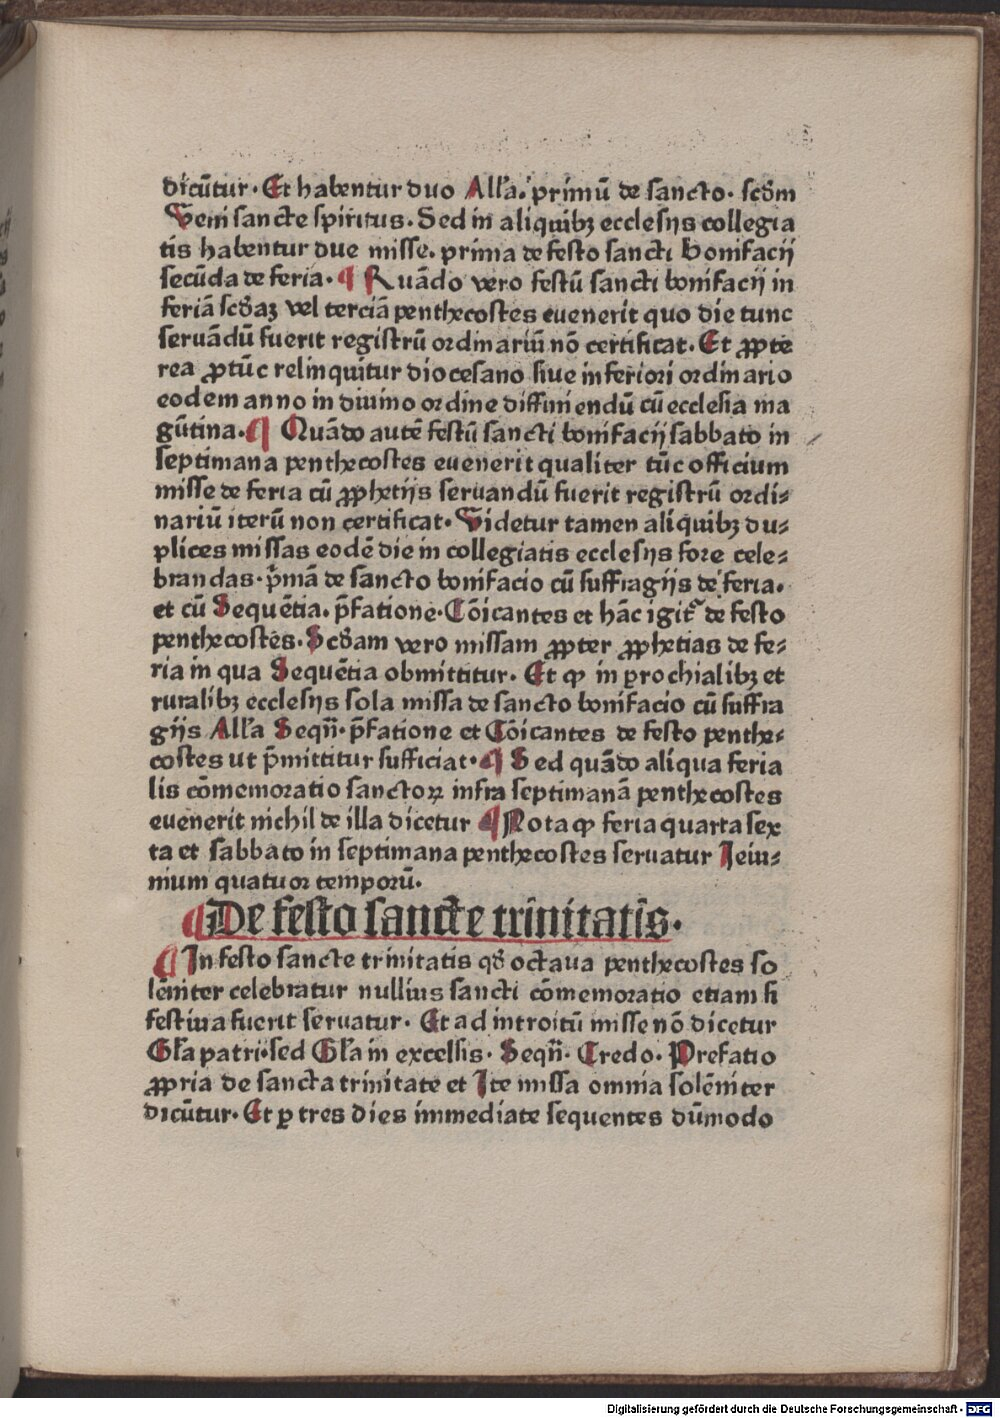 dicūtur. Et habentur duo Alľa. primū de sancto. scďm
Veni sancte spiritus. Sed in aliquibꝫ ecclesijs collegia
tis habentur due misse. prima de festo sancti bonifacij
secūda de feria. ¶ Quādo vero festū sancti bonifacij in
feriā scďaꝫ vel terciā penthecostes euenerit quo die tunc
seruādū fuerit registrū ordinariū nō certificat. Et ꝓpte
rea ꝓtūc relinquitur diocesano siue inferiori ordinario
eodem anno in diuino ordine diffiniendū cū ecclesia ma
gūtina. ¶ Quādo autē festū sancti bonifacij sabbato in
septimana penthecostes euenerit qualiter tūc officium
misse de feria cū ꝓphetijs seruandū fuerit registrū ordi⸗
nariū iterū non certificat. Videtur tamen aliquibꝫ du⸗
plices missas eodē die in collegiatis ecclesijs fore cele⸗
brandas. p̄mā de sancto bonifacio cū suffragijs de feria.
et cū Sequētia. p̄fatione. Cōicantes et hāc igit᷑ de festo
penthecostes. Scďam vero missam ꝓpter ꝓphetias de fe⸗
ria in qua Sequētia obmittitur. Et ꝙ in ꝑrochialibꝫ et
ruralibꝫ ecclesijs sola missa de sancto bonifacio cū suffra
gijs Alľa Seqn̄. p̄fatione et Cōicantes de festo penthe⸗
costes ut p̄mittitur sufficiat. ¶ Sed quādo aliqua feria
lis cōmemoratio sanctoꝝ infra septimanā penthecostes
euenerit nichil de illa dicetur ¶ Nota ꝙ feria quarta sex
ta et sabbato in septimana penthecostes seruatur Jeiu⸗
nium quatuor temporū.
¶ De festo sancte trinitatis.
¶ In festo sancte trinitatis qď octaua penthecostes so
lēniter celebratur nullius sancti cōmemoratio etiam si
festiua fuerit seruatur. Et ad introitū misse nō dicetur
Gľa patri. sed Gľa in excelsis. Seqn̄. Credo. Prefatio
ꝓpria de sancta trinitate et Ite missa omnia solēniter
dicūtur. Et ꝑ tres dies immediate sequentes dūmodo
Digitalisierung gefördert durch die Deutsche Forschungsgemeinschaft - DFG